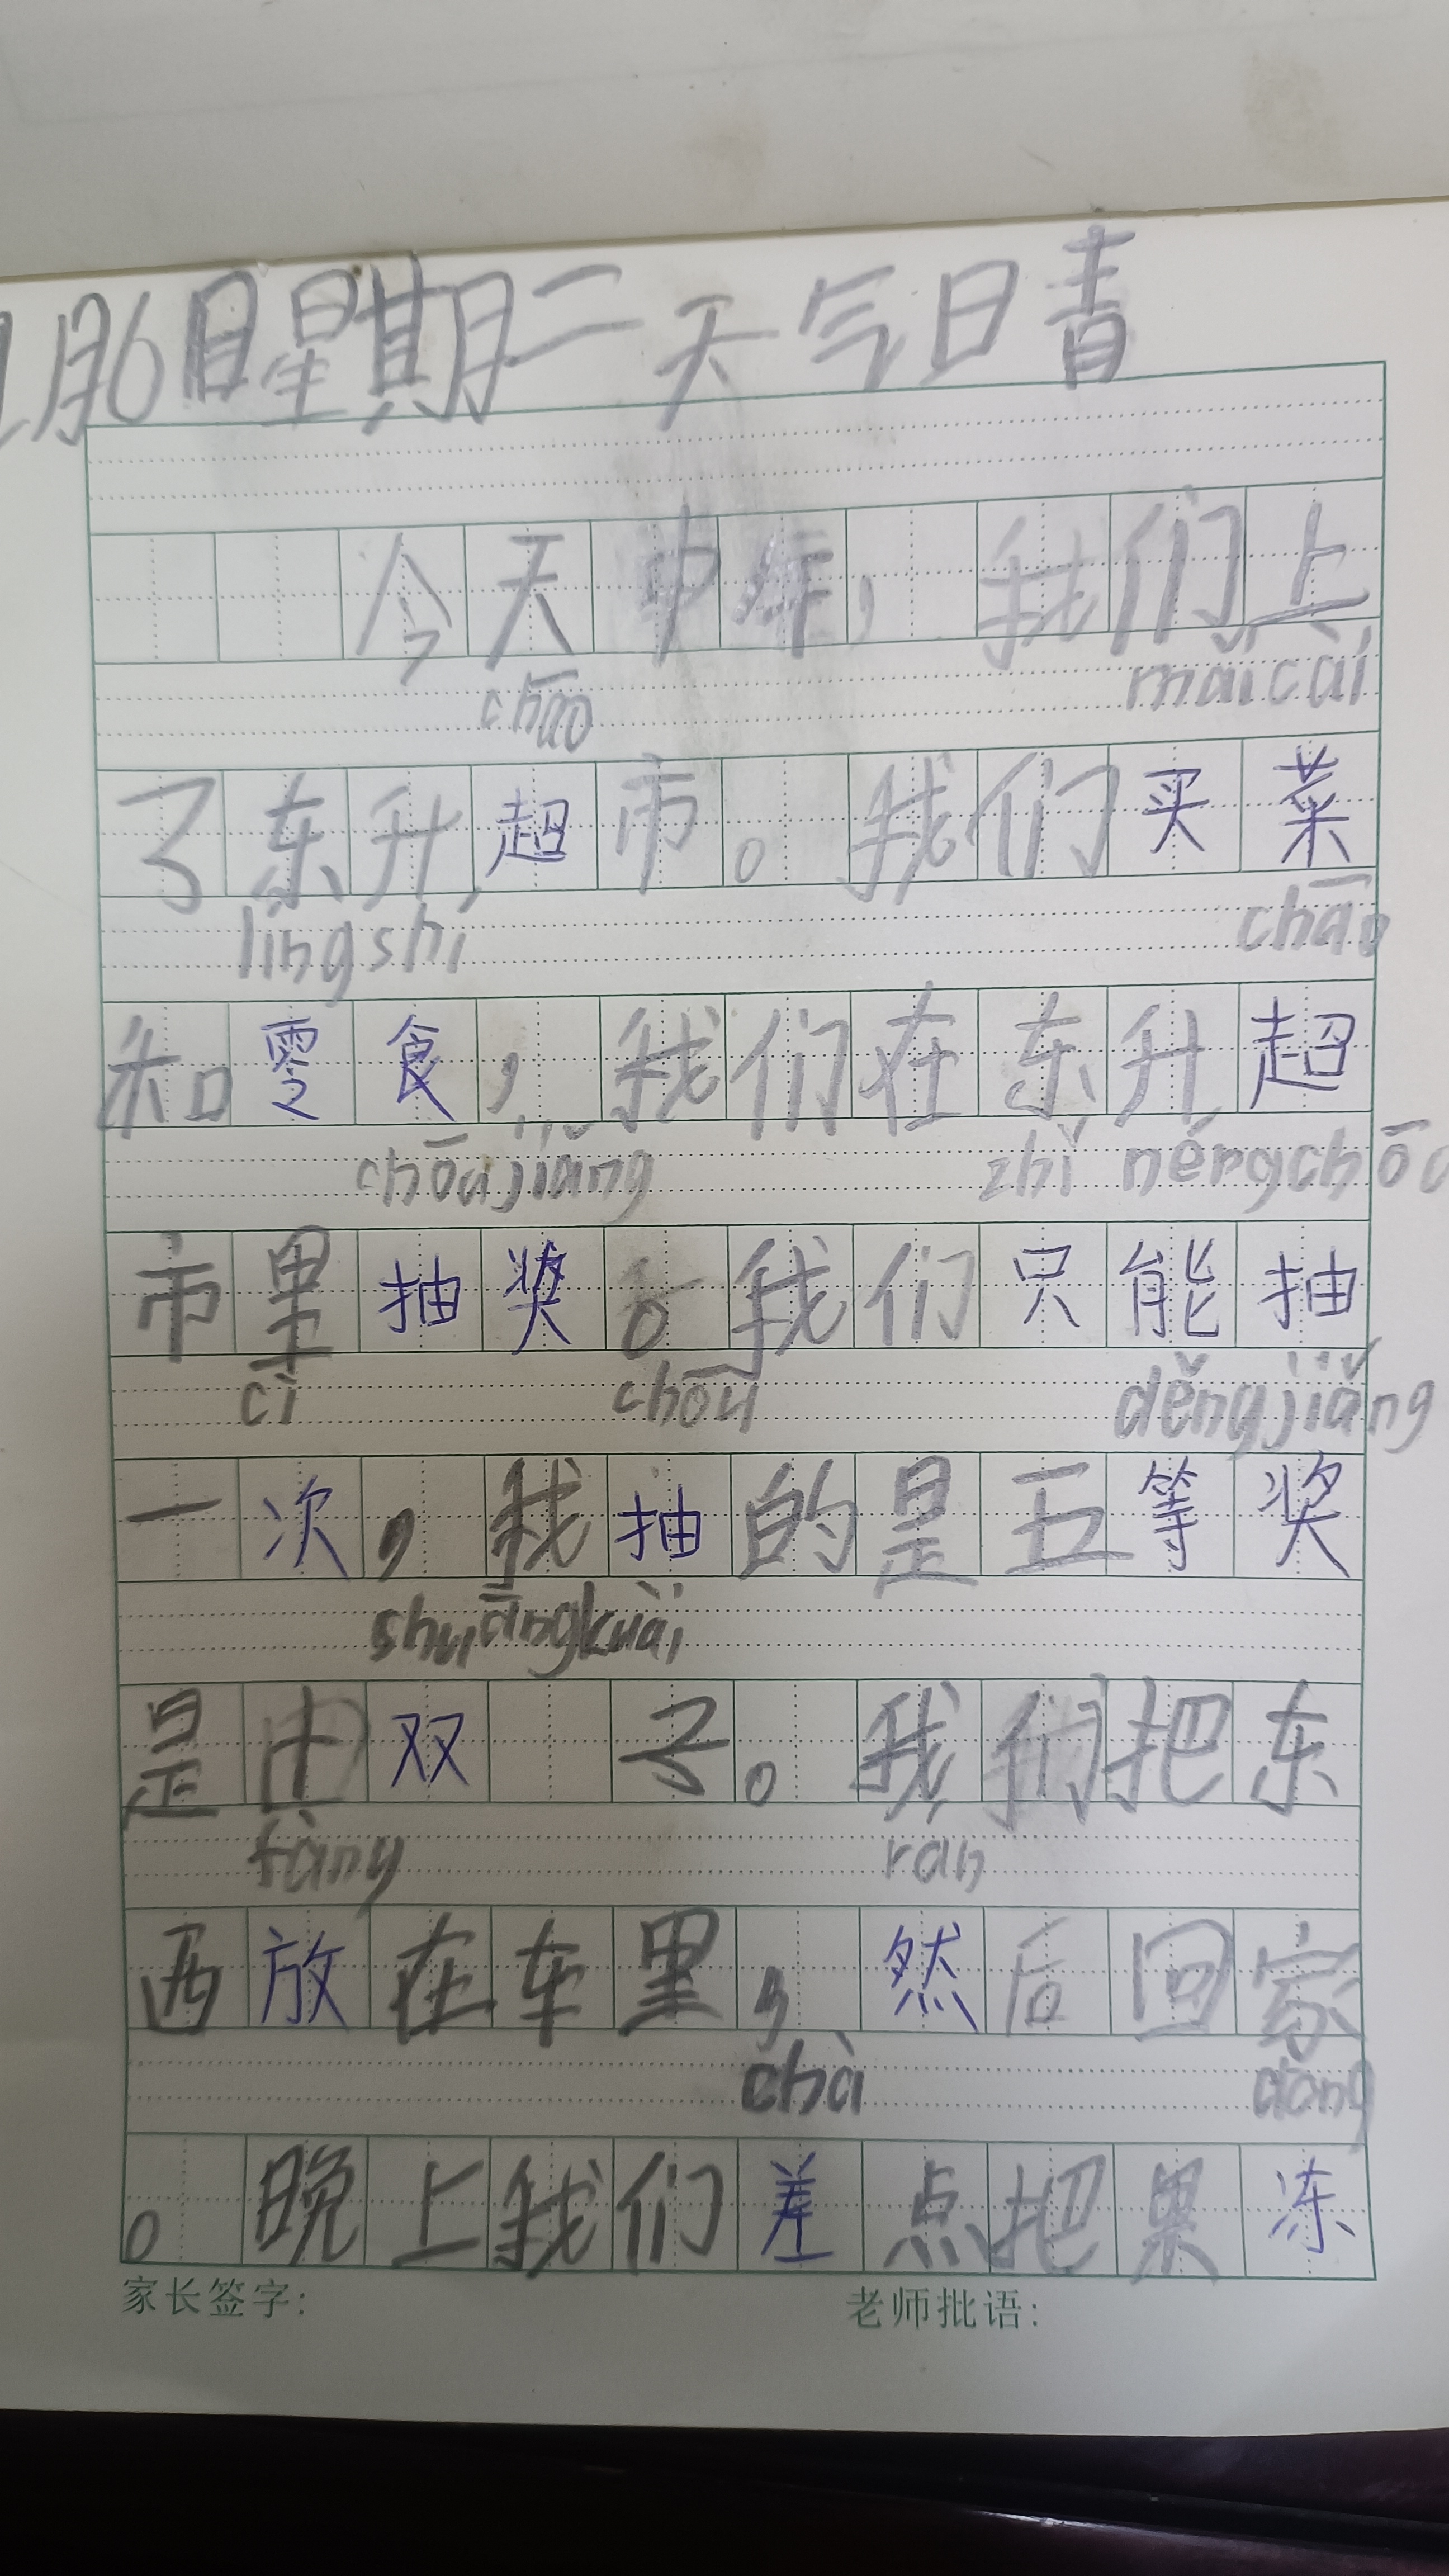 1月6日星期二天气日青
今天中午，我们上
chāo mǎi cài
了东升超市。我们买菜
líng shí chāo
和零食，我们在东升超
chōu jiǎng zhǐ néng chōu
市里抽奖。我们只能抽
cì chōu děng jiǎng
一次，我抽的是五等奖
shuāng kuài
是 双 子。我们把东
fàng rán
西放在车里，然后回家
chà dòng
。晚上我们差点把果冻
家长签字： 老师批语：